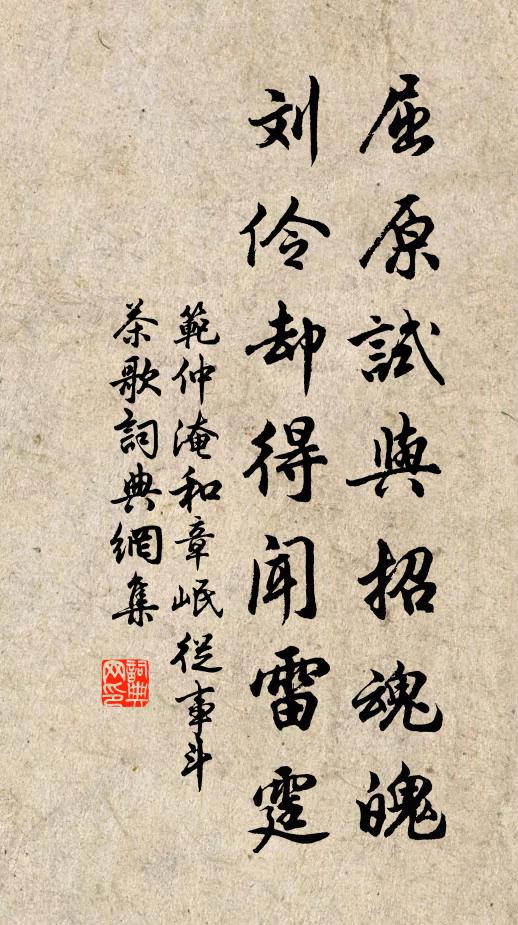 屈原試與招魂魄
刘伶却得闻雷霆
範仲淹和章岷從事斗
茶歌詞典網集
詞典网印